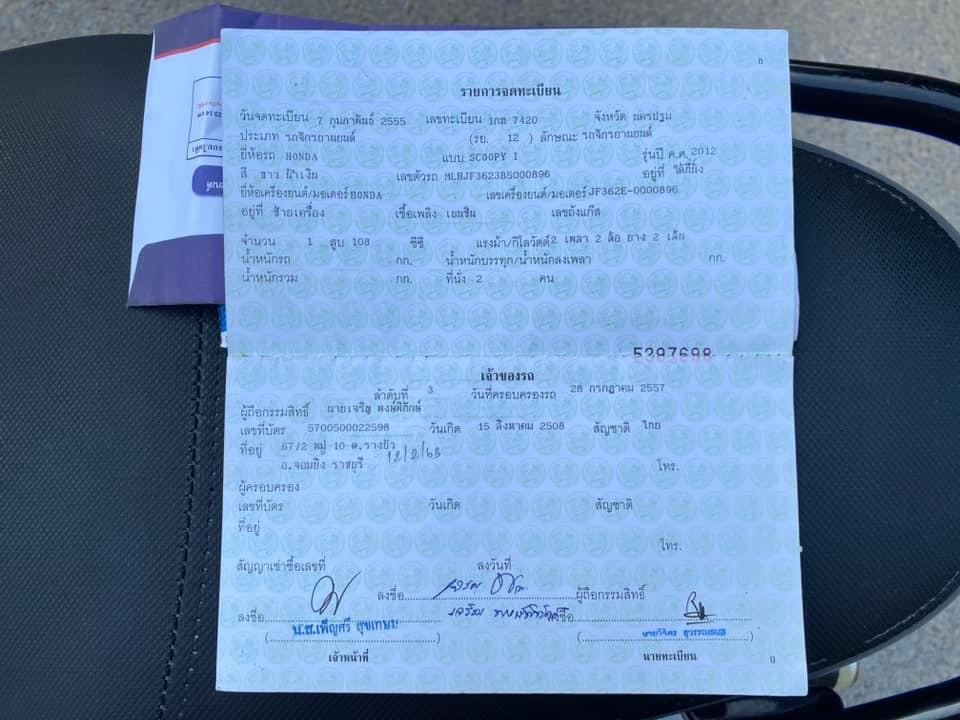 รายการจดทะเบียน
วันจดทะเบียน 7 กุมภาพันธ์ 2555 เลขทะเบียน 1กฬ 7420 จังหวัด นครปฐม
ประเภท รถจักรยานยนต์ (รย. 12 ) ลักษณะ รถจักรยานยนต์
ยี่ห้อรถ HONDA แบบ SCOOPY I รุ่นปี ค.ศ. 2012
สี ขาว น้ำเงิน เลขตัวรถ MLHJF3623B5000896 อยู่ที่ ใต้ที่นั่ง
ยี่ห้อเครื่องยนต์/มอเตอร์ HONDA เลขเครื่องยนต์/มอเตอร์ JF362E-0000896
อยู่ที่ ซ้ายเครื่อง เชื้อเพลิง เบนซิน เลขถังแก๊ส
จำนวน 1 สูบ 108 ซีซี แรงม้า/กิโลวัตต์ 2 เพลา 2 ล้อ ยาง 2 เส้น
น้ำหนักรถ กก. น้ำหนักบรรทุก/น้ำหนักลงเพลา กก.
น้ำหนักรวม กก. ที่นั่ง 2 คน
5397698
เจ้าของรถ
ลำดับที่ 3 วันที่ครอบครองรถ 28 กรกฎาคม 2557
ผู้ถือกรรมสิทธิ์ นายเจริญ พงษ์พิทักษ์
เลขที่บัตร 5700500022598 วันเกิด 15 สิงหาคม 2508 สัญชาติ ไทย
ที่อยู่ 67/2 หมู่ 10 ต.รางบัว
อ.จอมบึง ราชบุรี 12/2/63 โทร.
ผู้ครอบครอง
เลขที่บัตร วันเกิด สัญชาติ
ที่อยู่
โทร.
สัญญาเช่าซื้อเลขที่ ลงวันที่
ลงชื่อ เจริญ ผู้ถือกรรมสิทธิ์
ลงชื่อ เจริญ ลงชื่อ
(น.ส.เพ็ญศรี สุขเกษม) (นายวิจิตร)
เจ้าหน้าที่ นายทะเบียน